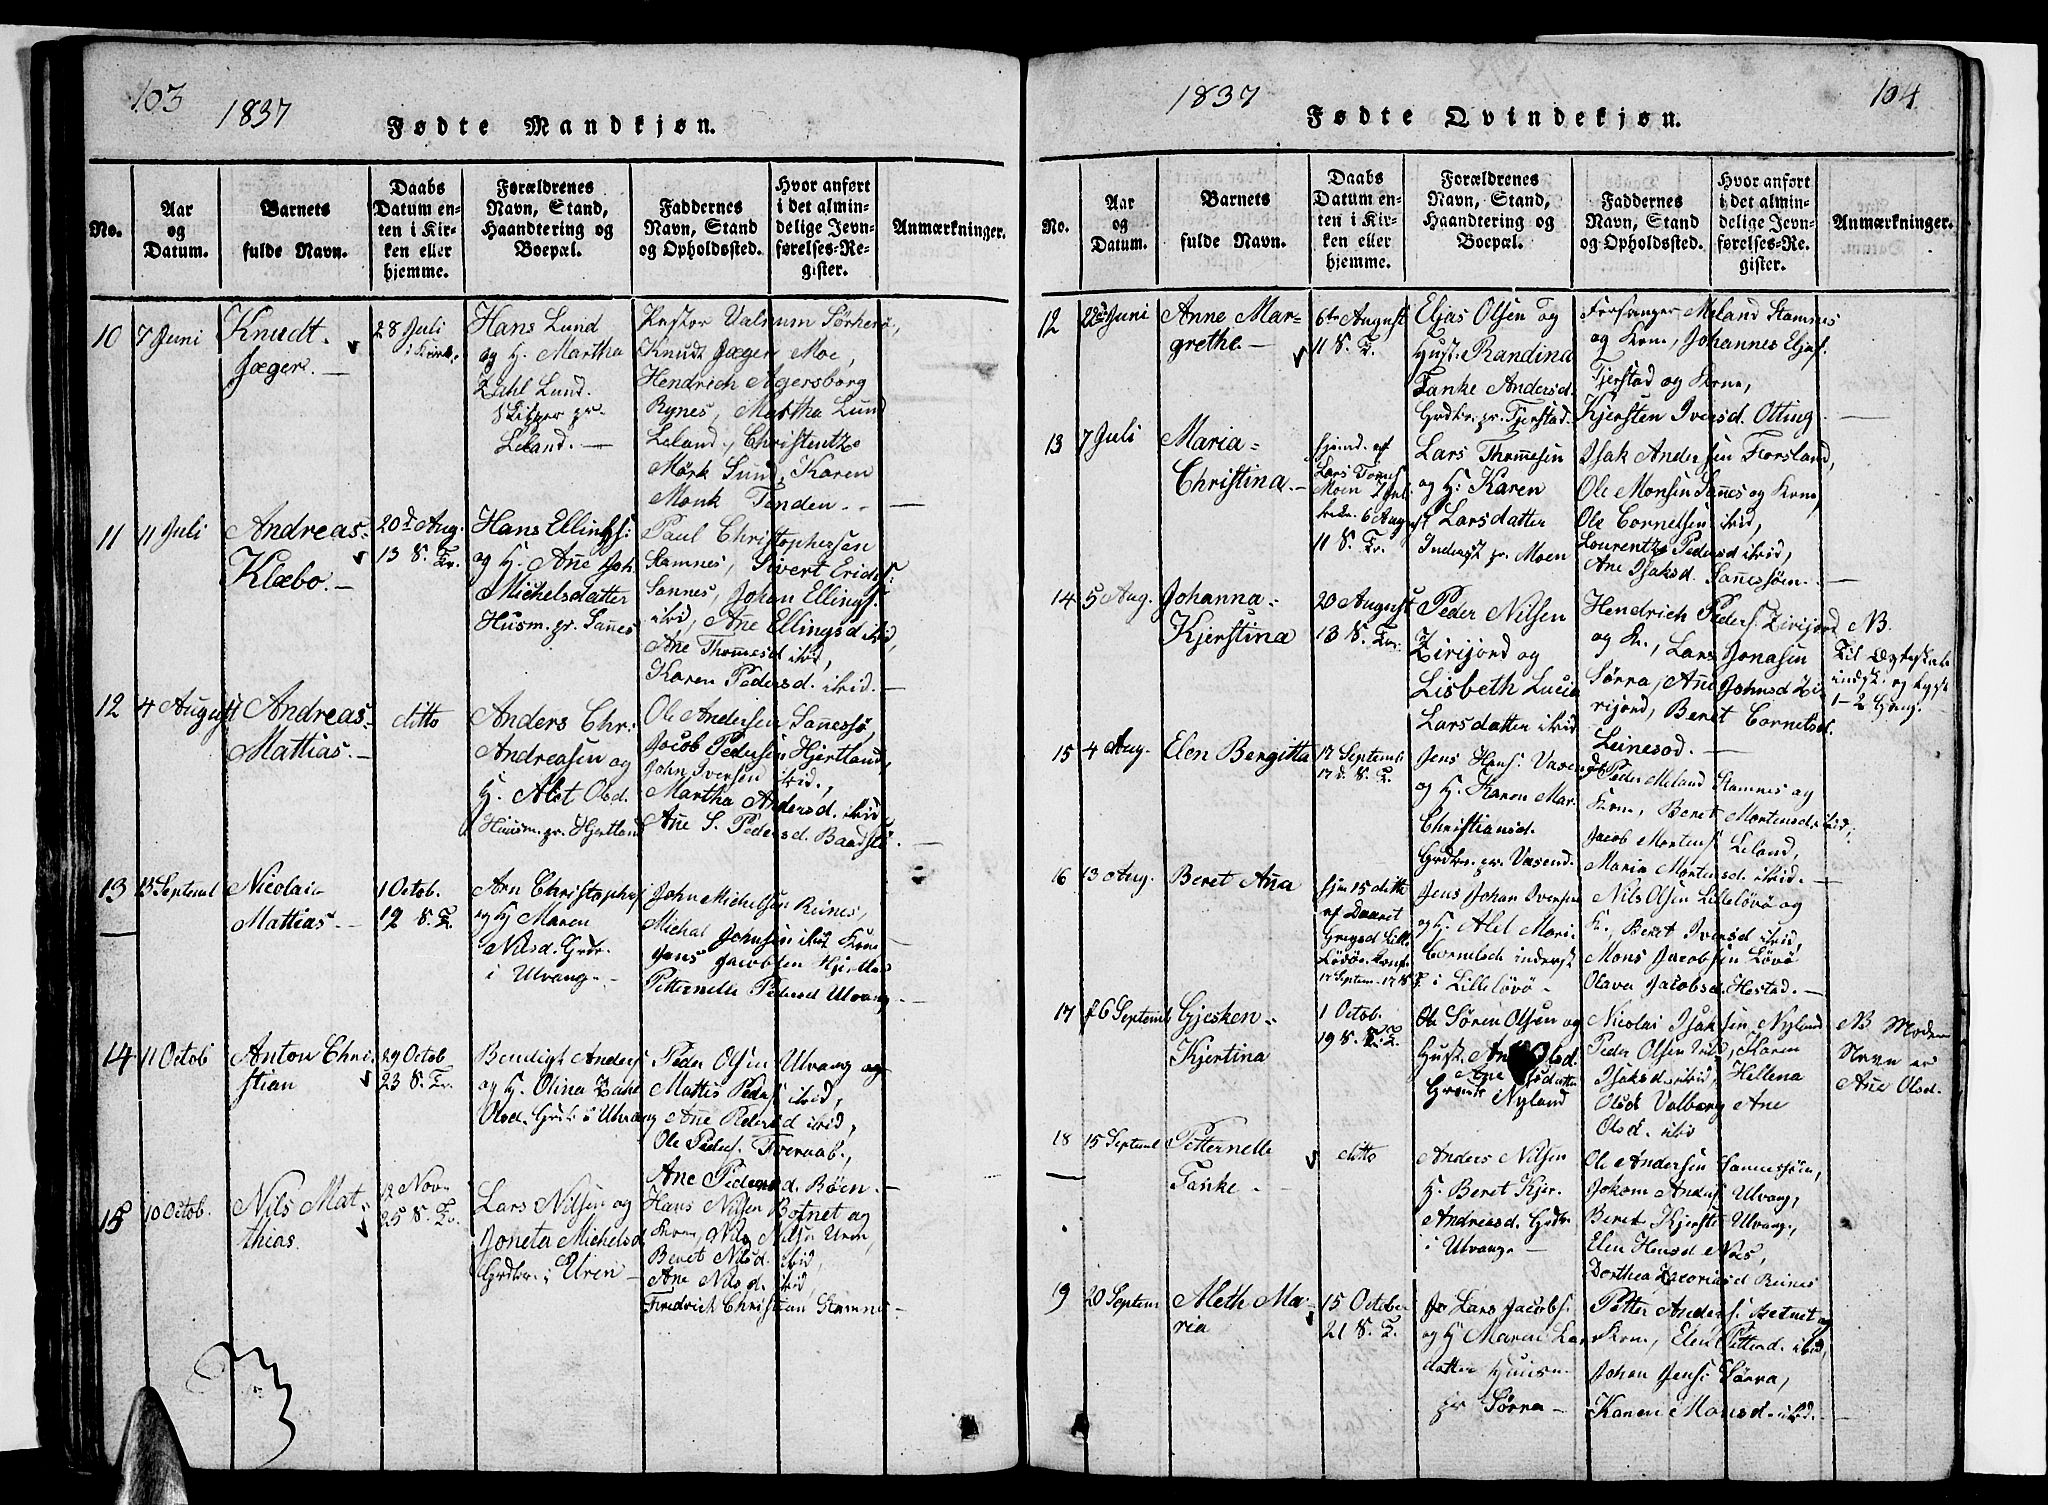 103
1837
Fødte Mandkjøn.
No.
Aar
og
Datum.
Barnets
fulde Navn.
Daabs
Datum en-
ten i Kir-
ken eller
hjemme.
Forældrenes
Navn, Stand,
Haandtering og
Boepæl.
Faddernes
Navn, Stand
og Opholdssted.
Hvor anført
i det almin-
delige Jevn-
førelses-Re-
gister.
Anmærkninger.
10
7 Juni
Knudt
Jæger. —
28 Juli
i Kirk.
Hans Lund
og H. Martha
Dahl Lund.
pr.
Leland. —
Pastor Valnum Sørhero,
Knudt Jæger Moe,
Hendrich Agersborg
Rynes, Martha Lund
Leland, Christentze
Mörk Sund, Karen
Monk Tenden. —
11
11 Juli
Andreas-
Klæbo. —
20d Aug.
13 S. Tr.
Hans Ellings:
og H. Ane Joh.
Michelsdatter
Husm. pr. Sañes
Paul Christophersen
Stamnes, Sivert Erichs:
Sannes, Johan Ellings:
ibid, Ane Ellingsd ibid,
Ane Thomesd ibid,
Karen Pedersd. ibid. —
12
4 August
Andreas-
Mattias. —
ditto
Anders Chr:
Andreasen og
H. Alet Olsd.
Huusm. pr. Hjertland
Ole Andersen Sañessø,
Jacob Pedersen Hjertland,
John Iversen ibid.,
Martha Andersd. ibid
Ane S. Pedersd. Baadstø. —
13
13 Septembl
Nicolai-
Mattias. —
1 Octob.
19 S. T.
Arn Christophs
og H. Maren
Nilsd. Grdr.
i Ulvang. —
John Michelsen Reines,
Michal Johnsen ibid Kone
Jens Jacobsen Hjertlas
Petternelle Pedersd Ulvang. —
14
11 Octob
Anton Chri-
stian
29 Octob
23 S. Tr.
Bendigt Anders
og H. Olina Dahl
Olsd. Grdr. i Ulvang
Peder Olsen Ulvang og
Mattis Peders ibid,
Añe Pedersd ibid,
Ole Peders. Tveraab,
Ane Pedersd. Böen —
15
10 Octob.
Nils Mat-
thias.
12 Nov.
25 S. Tr.
Lars Nilsen og
Joneta Michelsd
Grdbr. i Uren —
Hans Nilsen Botnet og
Kone, Nils Nilsen Uren,
Beret Nilsd. ibid,
Ane Nilsd. ibid
Fredrich Christian Stamnes —
1837
104
Fødte Qvindekjøn.
No.
Aar
og
Datum.
Barnets
fulde Navn.
Daabs
Datum en-
ten i Kir-
ken eller
hjemme.
Forældrenes
Navn, Stand,
Haandtering og
Boepæl.
Faddernes
Navn, Stand
og Opholdssted.
Hvor anført
i det almin-
delige Jevn-
førelses-Re-
gister.
Anmærkninger.
12
22d Juni
Anne Mar-
grethe. —
6te August
11 S. T.
Eljas Olsen og
Hust. Randina
Tanke Andersd.
Grdbr. pr. Tjerstad.
Forsanger Meland Stamnes
og Kone, Johannes Eljas.
Tjerstad og Kone,
Kjersten Iversd. Otting. —
13
7 Juli
Maria-
Christina. —
hjemd. af
Lars Tomes
Moen
6 August
11 S. Tr.
Lars Thomesen
og H: Karen
Larsdatter
Inderst pr. Moen
Isak Andersen Forsland,
Ole Monsen Sañes og Kone,
Ole Cornelsen ibid,
Lourentze Pedersd ibid,
Ane Isaksd. Sañessöen. —
14
5 Aug.
Johanna-
Kjerstina
20 August
13 S. Tr.
Peder Nilsen
Zirijord og
Lisbeth Lucia
Larsdatter ibid
Hendrich Peders. Zirijord
og K., Lars Jonasen
Sørra, Añe Johnsd Zi-
rijord, Beret Cornelsd.
Leinesod. —
NB.
Til
indsk. og
1-2 Gang.
15
4 Aug.
Elen Bergitta
17 Septemb
17d. S. T.
Jens Hans. Vasend
og H. Karen Mar.
Christiansd.
Grdbr. pr. Vasend.
Peder Meland Stamnes og
Kone, Beret Mortensd. ibid,
Jacob Mortens Leland,
Maria Mortensd. ibid. —
16
13 Aug.
Beret Aña
hjm 15 ditto
af Daaret
Gregsd Lille
Lövöe. Konf.
17 Septem. 17 S. T.
Jens Johan Iversen
og H. Alet Mari
Cornelsd inderst
i Lillelövö —
Nils Olsen Lillelövö og
K., Beret Iversd ibid,
Mons Jacobsen Lövö
Olava Jacobsd. Hestad. —
17
6 Septemb
Gjesken-
Kjertina
1 Octob.
19 S. T.
Sören Olsen og
Hust. Olsd.
Ane
Nyland
Nicolai Isaksen Nyland
Peder Olsen ibid, Karen
Isaksd. ibid, Hellena
Olsd Valberg Ane
Olsd. ibid
NB Moderens
Navn er
Ane Olsd.
18
15 Septembl
Petternelle
Tanke —
ditto
Anders Nilsen
H. Beret Kjer.
Andreasd. Grdbr
i Ulvange —
Ole Andersen Sannessöen,
Johan Anders Ulvang,
Beret Kjersti Ulvang,
Elen Hansd Næs,
Dorthea Zacoriasd Reines
19
20 Septem
Aleth Ma-
ria
15 October
21 S. T.
Lars Jacobs:
og H Maren Lars
datter Huusm
pr Sørra —
Petter Anders: Betnet og
Kone, Elen Pettersd. ibid,
Johan Jens: Sørra,
Karen Monsd. ibid. —